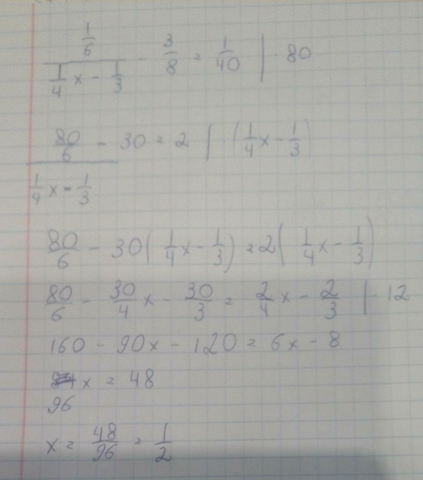 1/6 / (1/4 x - 1/3) - 3/8 = 1/40 | 80
80/6 / (1/4 x - 1/3) - 30 = 2 | (1/4 x - 1/3)
80/6 - 30(1/4 x - 1/3) = 2(1/4 x - 1/3)
80/6 - 30/4 x - 30/3 = 2/4 x - 2/3 | · 12
160 - 90x - 120 = 6x - 8
96 x = 48
x = 48/96 = 1/2